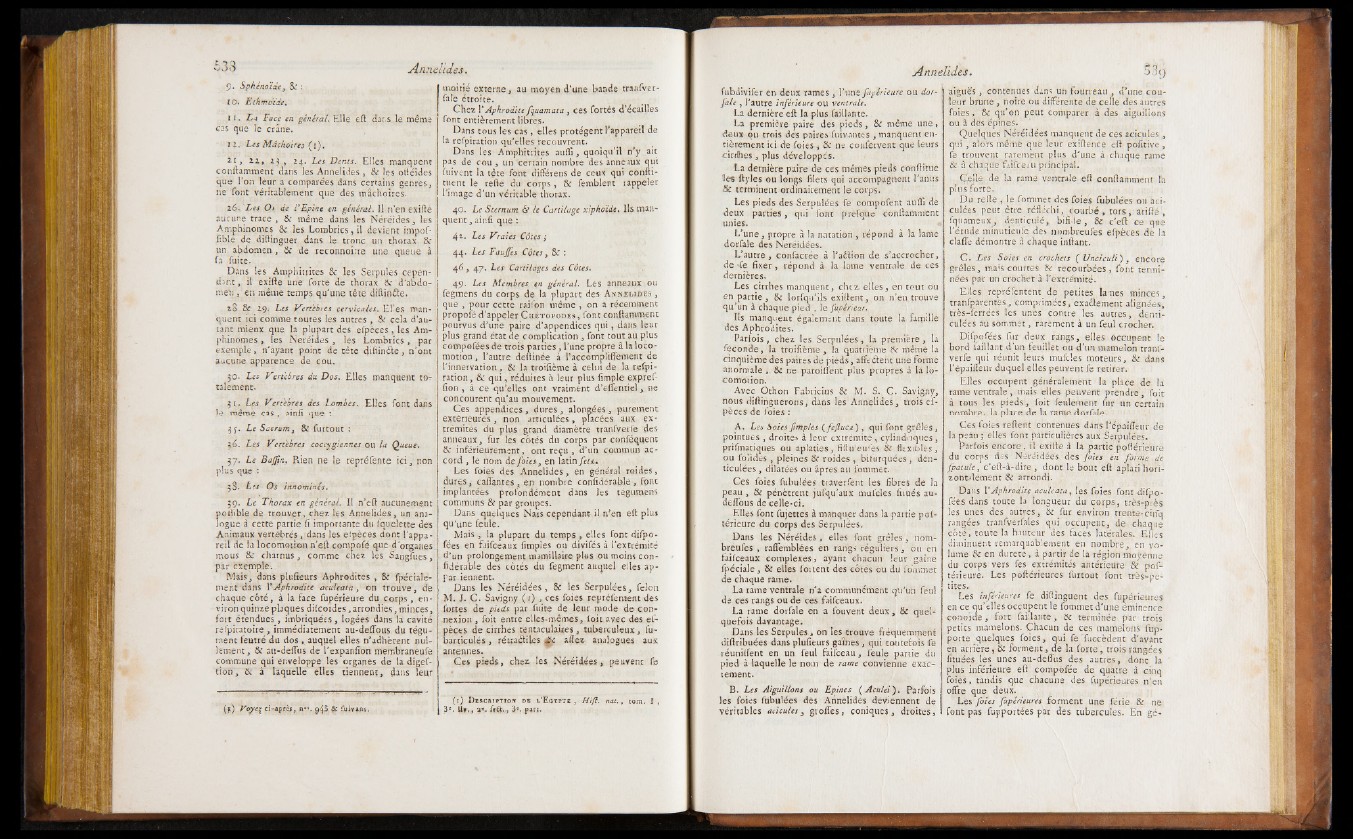 538 Annelides.
9. Sphénoïde, & :
10. Ethmoïde.
11. La Face en général. Elle eſt dans le même
cas que le crâne.
12. Les Mâchoires (1).
21, 22, 23, 24. Les Dents. Elles manquent
conſtamment dans les Annelides, & les oſſéides
que l'on leur a comparées dans certains genres,
ne ſont véritablement que des mâchoires.
26. Les Os de l'Epine en général. Il n'en exiſte
aucune trace, & même dans les Néréides, les
Amphinomes & les Lombrics, il devient impoſ-
ſible de diſtinguer dans le tronc un thorax &
un abdomen, & de reconnoître une queue à
ſa ſuite.
Dans les Amphitrites & les Serpules cepen-
dant, il exiſte une ſorte de thorax & d'abdo-
men, en même temps qu'une tête diſtincte.
28 & 29. Les Vertèbres cervicales. Elles man-
quent ici comme toutes les autres, & cela d'au-
tant mieux que la plupart des eſpèces, les Am-
phinomes, les Néréides, les Lombrics, par
exemple, n'ayant point de tête diſtincte, n'ont
aucune apparence de cou.
30. Les Vertèbres du Dos. Elles manquent to-
talement.
31. Les Vertèbres des Lombes. Elles ſont dans
le même cas, ainſi que :
35. Le Sacrum, & ſurtout :
36. Les Vertèbres coccygiennes ou la Queue.
37. Le Baſſin. Rien ne le repréſente ici, non
plus que :
38. Les Os innominés.
39. Le Thorax en général. Il n'eſt aucunement
poſſible de trouver, chez les Annelides, un ana-
logue à cette partie ſi importante du ſquelette des
Animaux vertébrés, dans les eſpèces dont l'appa-
reil de la locomotion n'eſt compoſé que d'organes
mous & charnus, comme chez les Sangſues,
par exemple.
Mais, dans pluſieurs Aphrodites, & ſpéciale-
ment dans l'Aphrodite aculeata, on trouve, de
chaque côté, à la face ſupérieure du corps, en-
viron quinze plaques diſcoïdes, arrondies, minces,
fort étendues, imbriquées, logées dans la cavité
reſpiratoire, immédiatement au-deſſous du tégu-
ment feutré du dos, auquel elles n'adhèrent nul-
lement, & au-deſſus de l'expanſion membraneuſe
commune qui enveloppe les organes de la digeſ-
tion, & à laquelle elles tiennent, dans leur
(1) Voyez ci-après, nos. 945 & ſuivans.
moitié externe, au moyen d'une bande tranſver-
ſale étroite.
Chez l'Aphrodite ſquamata, ces ſortes d'écailles
ſont entièrement libres.
Dans tous les cas, elles protégent l'appareil de
la reſpiration qu'elles recouvrent.
Dans les Amphitrites auſſi, quoiqu'il n'y ait
pas de cou, un certain nombre des anneaux qui
ſuivent la tête ſont différens de ceux qui conſti-
tuent le reſte du corps, & ſemblent rappeler
l'image d'un véritable thorax.
40. Le Sternum & le Cartilage xiphoïde. Ils man-
quent, ainſi que :
42. Les Vraies Côtes ;
44. Les Fauſſes Côtes, & :
46, 47. Les Cartilages des Côtes.
49. Les Membres en général. Les anneaux ou
ſegmens du corps de la plupart des ANNELIDES,
que, pour cette raiſon même, on a récemment
propoſé d'appeler CHÉTOPODES, ſont conſtamment
pourvus d'une paire d'appendices qui, dans leur
plus grand état de complication, ſont tout au plus
compoſées de trois parties, l'une propre à la loco-
motion, l'autre deſtinée à l'accompliſſement de
l'innervation, & la troiſième à celui de la reſpi-
ration, & qui, réduites à leur plus ſimple expreſ-
ſion, à ce qu'elles ont vraiment d'eſſentiel, ne
concourent qu'au mouvement.
Ces appendices, dures, alongées, purement
extérieures, non articulées, placées aux ex-
trémités du plus grand diamètre tranſverſe des
anneaux, ſur les côtés du corps par conſéquent
& inférieurement, ont reçu, d'un commun ac-
cord, le nom de ſoies, en latin ſetæ.
Les ſoies des Annelides, en général roides,
dures, caſſantes, en nombre conſidérable, ſont
implantées profondément dans les tégumens
communs & par groupes.
Dans quelques Naïs cependant il n'en eſt plus
qu'une ſeule.
Mais, la plupart du temps, elles ſont diſpo-
ſées en faiſceaux ſimples ou diviſés à l'extrémité
d'un prolongement mamillaire plus ou moins con-
ſidérable des côtés du ſegment auquel elles ap-
partiennent.
Dans les Néréidées, & les Serpulées, ſelon
M. J. C. Savigny (1), ces ſoies repréſentent des
ſortes de pieds par ſuite de leur mode de con-
nexion, ſoit entre elles-mêmes, ſoit avec des eſ-
pèces de cirrhes tentaculaires, tuberculeux, ſu-
barticulés, rétractiles & aſſez analogues aux
antennes.
Ces pieds, chez les Néréidées, peuvent ſe
(1) DESCRIPTION DE L'EGYPTE, Hiſt. nat., tom. I,
3e. liv., 2e. ſect., 3e. part.
Annelides. 539
ſubdiviſer en deux rames, l'une ſupérieure ou dor-
ſale, l'autre inférieure ou ventrale.
La dernière eſt la plus ſaillante.
La première paire des pieds, & même une,
deux ou trois des paires ſuivantes, manquent en-
tièrement ici de ſoies, & ne conſervent que leurs
cirrhes, plus développés.
La dernière paire de ces mêmes pieds conſtitue
les ſtyles ou longs filets qui accompagnent l'anus
& terminent ordinairement le corps.
Les pieds des Serpulées ſe compoſent auſſi de
deux parties, qui ſont preſque conſtamment
unies.
L'une, propre à la natation, répond à la lame
dorſale des Néréidées.
L'autre, conſacrée à l'action de s'accrocher,
de ſe fixer, répond à la lame ventrale de ces
dernières.
Les cirrhes manquent, chez elles, en tout ou
en partie, & lorſqu'ils exiſtent, on n'en trouve
qu'un à chaque pied, le ſupérieur.
Ils manquent également dans toute la famille
des Aphrodites.
Parfois, chez les Serpulées, la première, la
ſeconde, la troiſième, la quatrième & même la
cinquième des paires de pieds, affectent une forme
anormale, & ne paroiſſent plus propres à la lo-
comotion.
Avec Othon Fabricius & M. S. C. Savigny,
nous diſtinguerons, dans les Annelides, trois eſ-
pèces de ſoies :
A. Les Soies ſimples (feſtucæ), qui ſont grêles,
pointues, droites à leur extrémité, cylindriques,
priſmatiques ou aplaties, fiſtuleuſes & flexibles,
ou ſolides, pleines & roides, biſurquées, den-
ticulées, dilatées ou âpres au ſommet.
Ces ſoies ſubulées traverſent les fibres de la
peau, & pénètrent juſqu'aux muſcles ſitués au-
deſſous de celle-ci.
Elles ſont ſujettes à manquer dans la partie poſ-
térieure du corps des Serpulées.
Dans les Néréides, elles ſont grêles, nom-
breuſes, raſſemblées en rangs réguliers, ou en
faiſceaux complexes, ayant chacun leur gaîne
ſpéciale, & elles ſortent des côtés ou du ſommet
de chaque rame.
La rame ventrale n'a communément qu'un ſeul
de ces rangs ou de ces faiſceaux.
La rame dorſale en a ſouvent deux, & quel-
quefois davantage.
Dans les Serpules, on les trouve fréquemment
diſtribuées dans pluſieurs gaînes, qui toutefois ſe
réuniſſent en un ſeul faiſceau, ſeule partie du
pied à laquelle le nom de rame convienne exac-
tement.
B. Les Aiguillons ou Epines (Aculei). Parfois
les ſoies ſubulées des Annelides deviennent de
véritables acicules, groſſes, coniques, droites,
aiguës, contenues dans un fourreau, d'une cou-
leur brune, noire ou différente de celle des autres
ſoies, & qu'on peut comparer à des aiguillons
ou à des épines.
Quelques Néréidées manquent de ces acicules,
qui, alors même que leur exiſtence eſt poſitive,
ſe trouvent rarement plus d'une à chaque rame
& à chaque faiſceau principal.
Celle de la rame ventrale eſt conſtamment la
plus forte.
Du reſte, le ſommet des ſoies ſubulées ou aci-
culées peut être réfléchi, courbé, tors, ariſté,
ſquameux, denticulé, bifide, & c'eſt ce que
l'étude minutieuſe des nombreuſes eſpèces de la
claſſe démontre à chaque inſtant.
C. Les Soies en crochets (Uncinuli), encore
grêles, mais courtes & recourbées, ſont termi-
nées par un crochet à l'extrémité.
Elles repréſentent de petites lames minces,
tranſparentes, comprimées, exactement alignées,
très-ſerrées les unes contre les autres, denti-
culées au ſommet, rarement à un ſeul crochet.
Diſpoſées ſur deux rangs, elles occupent le
bord ſaillant d'un feuillet ou d'un mamelon tranſ-
verſe qui réunit leurs muſcles moteurs, & dans
l'épaiſſeur duquel elles peuvent ſe retirer.
Elles occupent généralement la place de la
rame ventrale, mais elles peuvent prendre, ſoit
à tous les pieds, ſoit ſeulement ſur un certain
nombre, la place de la rame dorſale.
Ces ſoies reſtent contenues dans l'épaiſſeur de
la peau ; elles ſont particulières aux Serpulées.
Parfois encore, il exiſte à la partie poſtérieure
du corps des Néréidées des ſoies en forme de
ſpatule, c'eſt-à-dire, dont le bout eſt aplati hori-
zontalement & arrondi.
Dans l'Aphrodite aculeata, les ſoies ſont diſpo-
ſées dans toute la longueur du corps, très-près
les unes des autres, & ſur environ trente-cinq
rangées tranſverſales qui occupent, de chaque
côté, toute la hauteur des faces latérales. Elles
diminuent remarquablement en nombre, en vo-
lume & en dureté, à partir de la région moyenne
du corps vers ſes extrémités antérieure & poſ-
térieure. Les poſtérieures ſurtout ſont très-pe-
tites.
Les inférieures ſe diſtinguent des ſupérieures
en ce qu'elles occupent le ſommet d'une éminence
conoïde, fort ſaillante, & terminée par trois
petits mamelons. Chacun de ces mamelons ſup-
porte quelques ſoies, qui ſe ſuccèdent d'avant
en arrière, & forment, de la ſorte, trois rangées
ſituées les unes au-deſſus des autres, dont la
plus inférieure eſt compoſée de quatre à cinq
ſoies, tandis que chacune des ſupérieures n'en
offre que deux.
Les ſoies ſupérieures forment une ſérie & ne
ſont pas ſupportées par des tubercules. En gé-